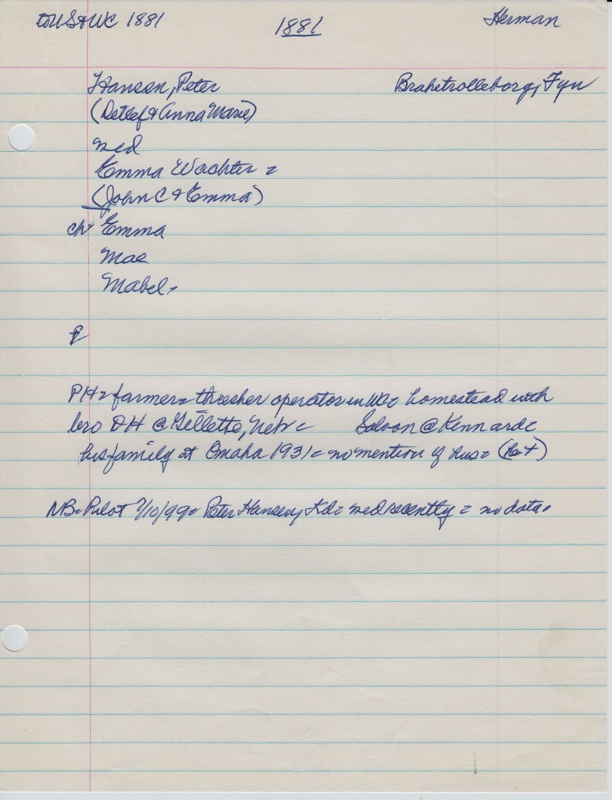 to US & WC 1881
1881
Herman
Hansen, Peter
Brahetrolleborg, Fyn
(Detlef & Anna Marie)
med
Emma Wachter =
(John C & Emma)
ch Emma
Mae
Mabel -
PH = farmer = thresher operator in WC = homestead with
bro DH @ Gillette, Nebr = Saloon @ Kennard =
his family at Omaha 1931 = no mention of hus =
NB = Pilot 2/10/99 = Peter Hansen, Kd = med recently = no data.